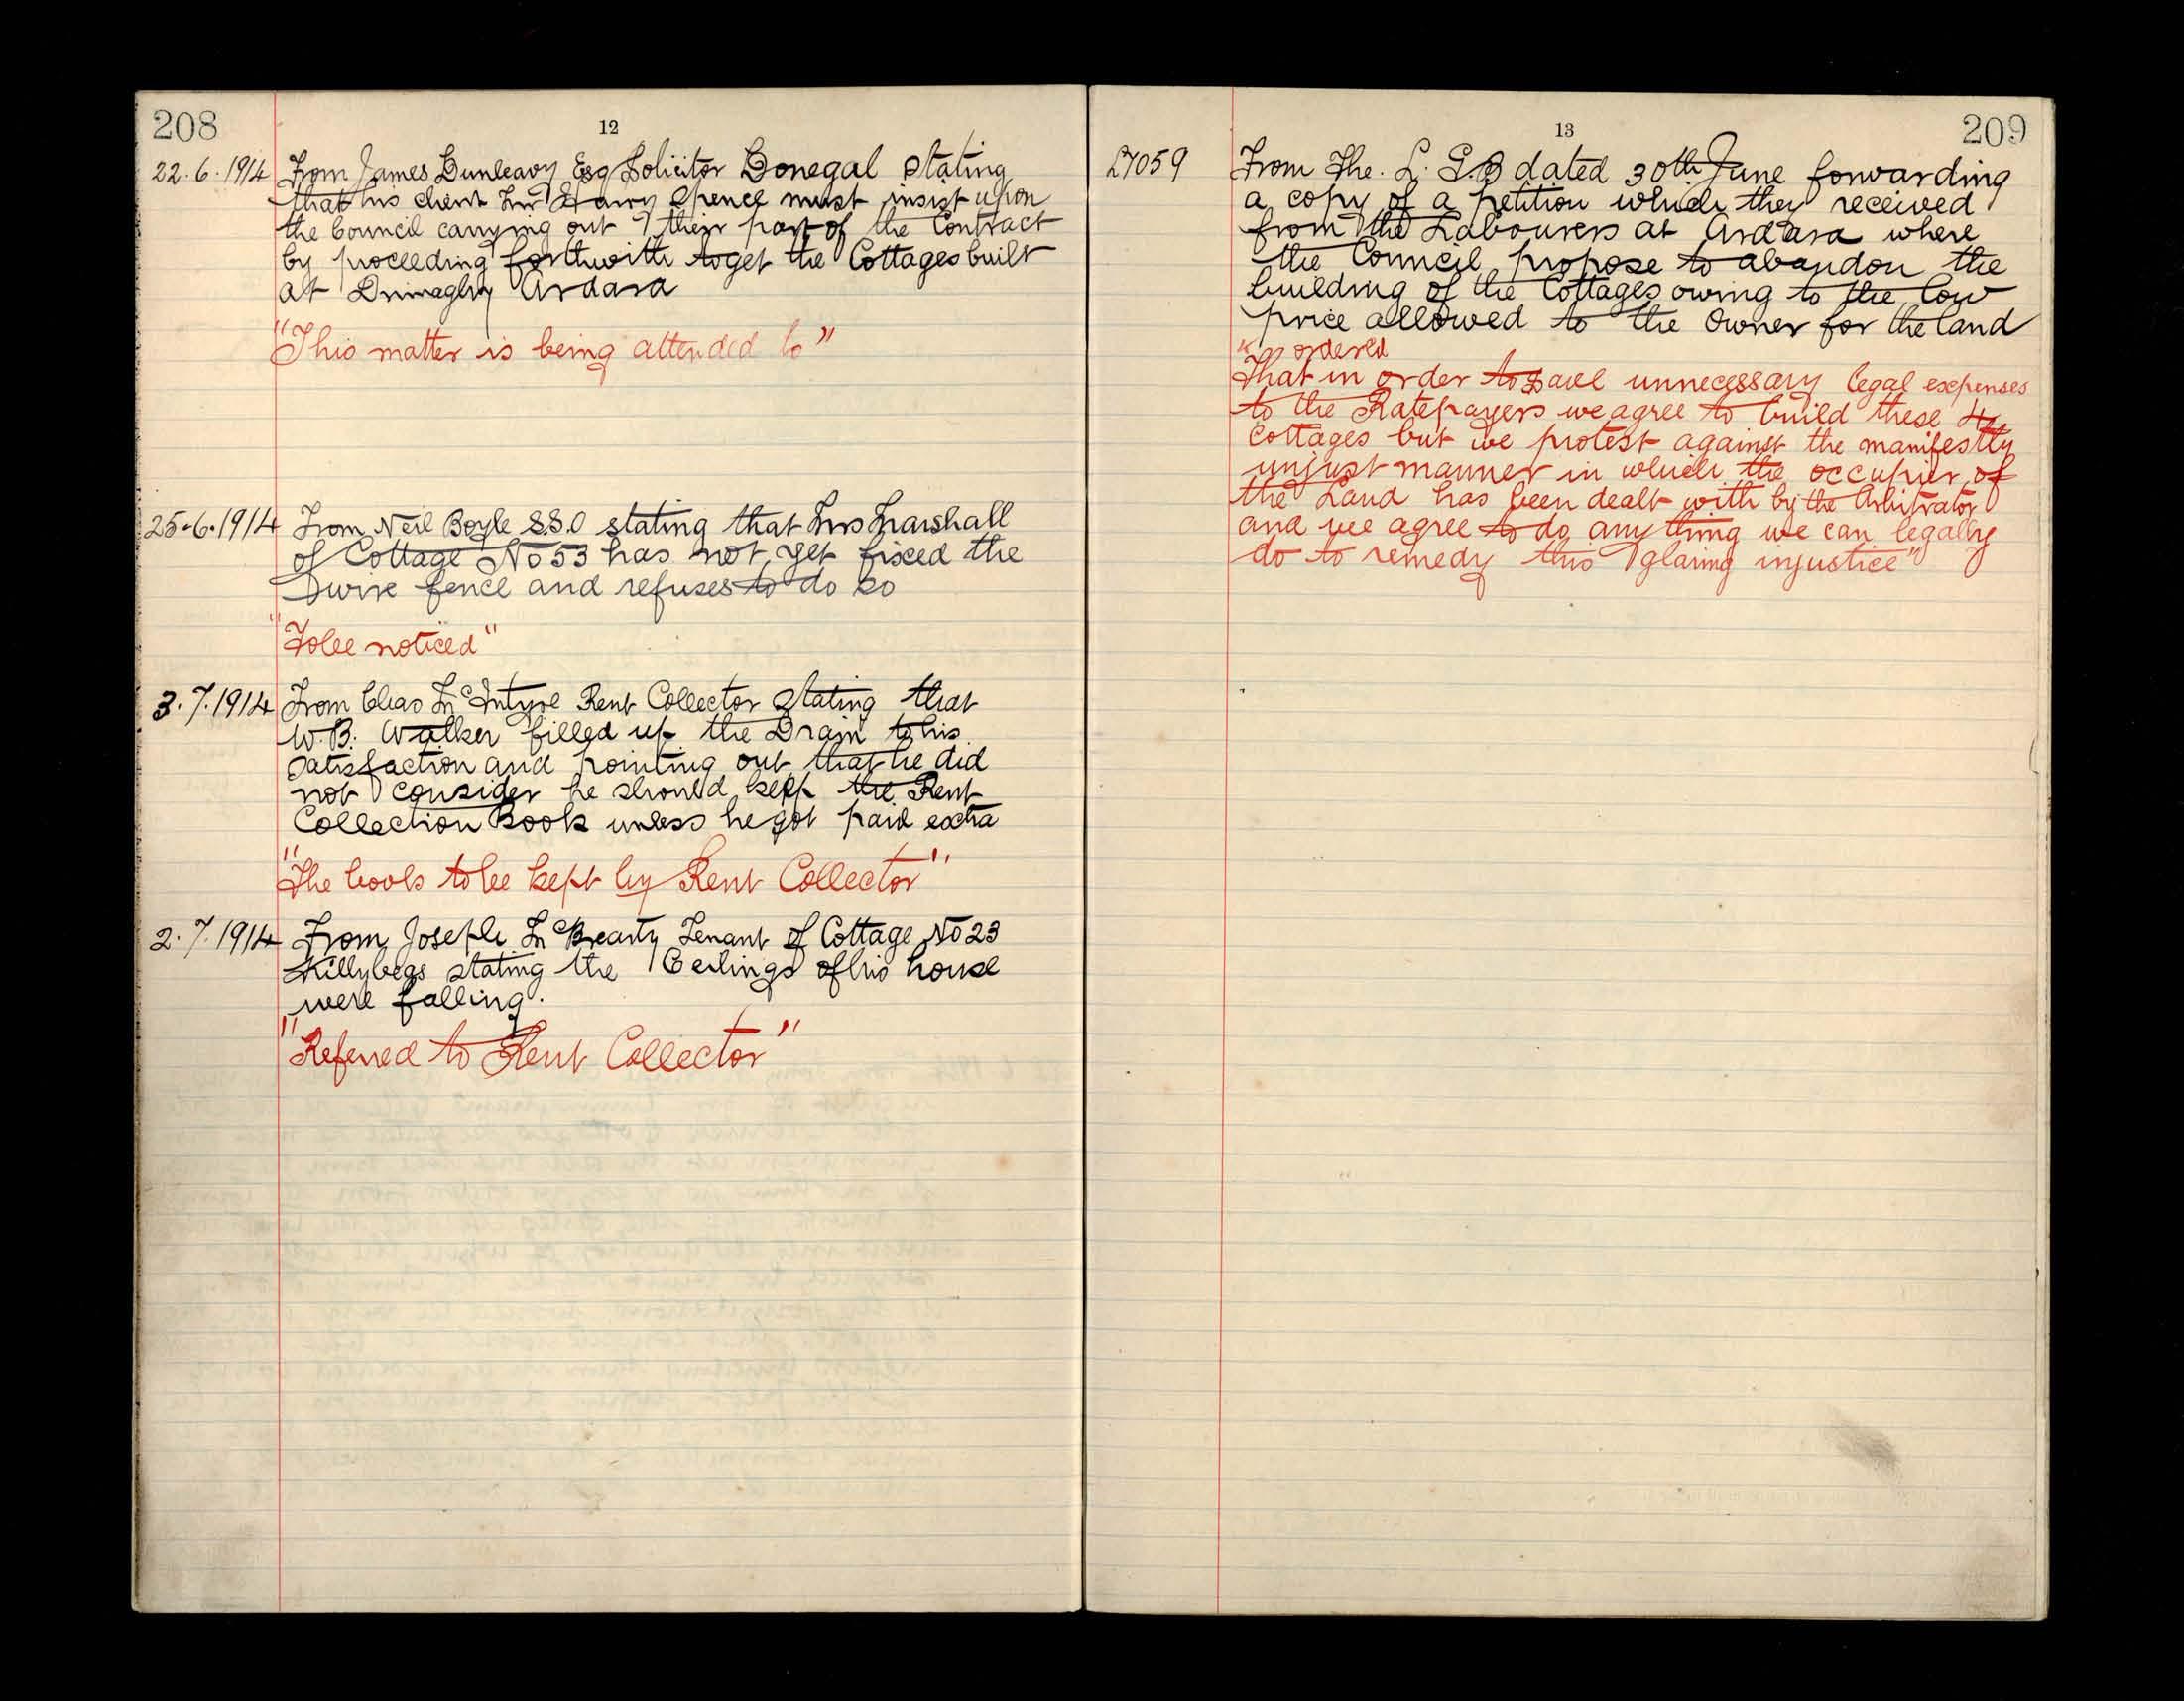 208
12
22.6.1914 From James Dunleavy Esq Solicitor Donegal stating
that his client Mr Harry Spence must insist upon
the Council carrying out their part of the Contract
by proceeding forthwith to get the Cottages built
at Ardara
"This matter is being attended to"
25.6.1914 From Neil Boyle S.S.O stating that Mrs Marshall
of Cottage No 53 has not yet fixed the
wire fence and refuses to do so
"To be noticed"
3.7.1914 From Chas McIntyre Rent Collector stating that
W.B. Walker filled up the Drain to his
satisfaction and pointing out that he did
not consider he should keep the Rent
Collection Book unless he got paid extra
"The books to be kept by Rent Collector"
2.7.1914 From Joseph McBrearty Tenant of Cottage No 23
Killybegs stating the Ceilings of his house
were falling.
"Referred to Rent Collector"
13
209
27059 From The L.G.B dated 30th June forwarding
a copy of a petition which they received
from the Labourers at Ardara where
the Council propose to abandon the
building of the Cottages owing to the low
price allowed to the Owner for the land
ordered
That in order to save unnecessary legal expenses
to the Ratepayers we agree to build these 4
cottages but we protest against the manifestly
unjust manner in which the occupier of
the Land has been dealt with by the Arbitrator
and we agree to do any thing we can legally
do to remedy this glaring injustice"